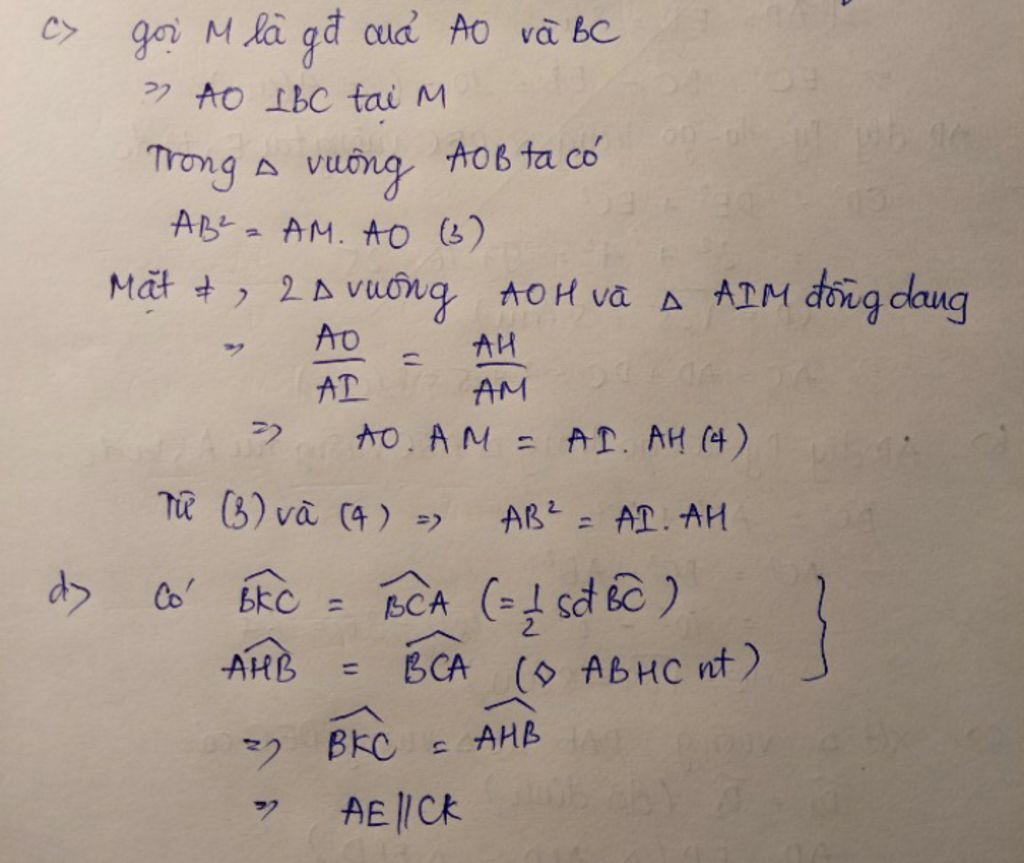 c> gọi M là gđ của AO và BC
=> AO ⊥BC tại M
Trong △ vuông AOB ta có
AB² = AM. AO (3)
Mặt ≠, 2 △ vuông AOH và △ AIM đồng dạng
=> AO/AI = AH/AM
=> AO. AM = AI. AH (4)
Từ (3) và (4) => AB² = AI. AH
d> Có \widehat{BKC} = \widehat{BCA} (= 1/2 sđ \widehat{BC}) }
\widehat{AHB} = \widehat{BCA} (◇ ABHC nt)
=> \widehat{BKC} = \widehat{AHB}
=> AE // CK